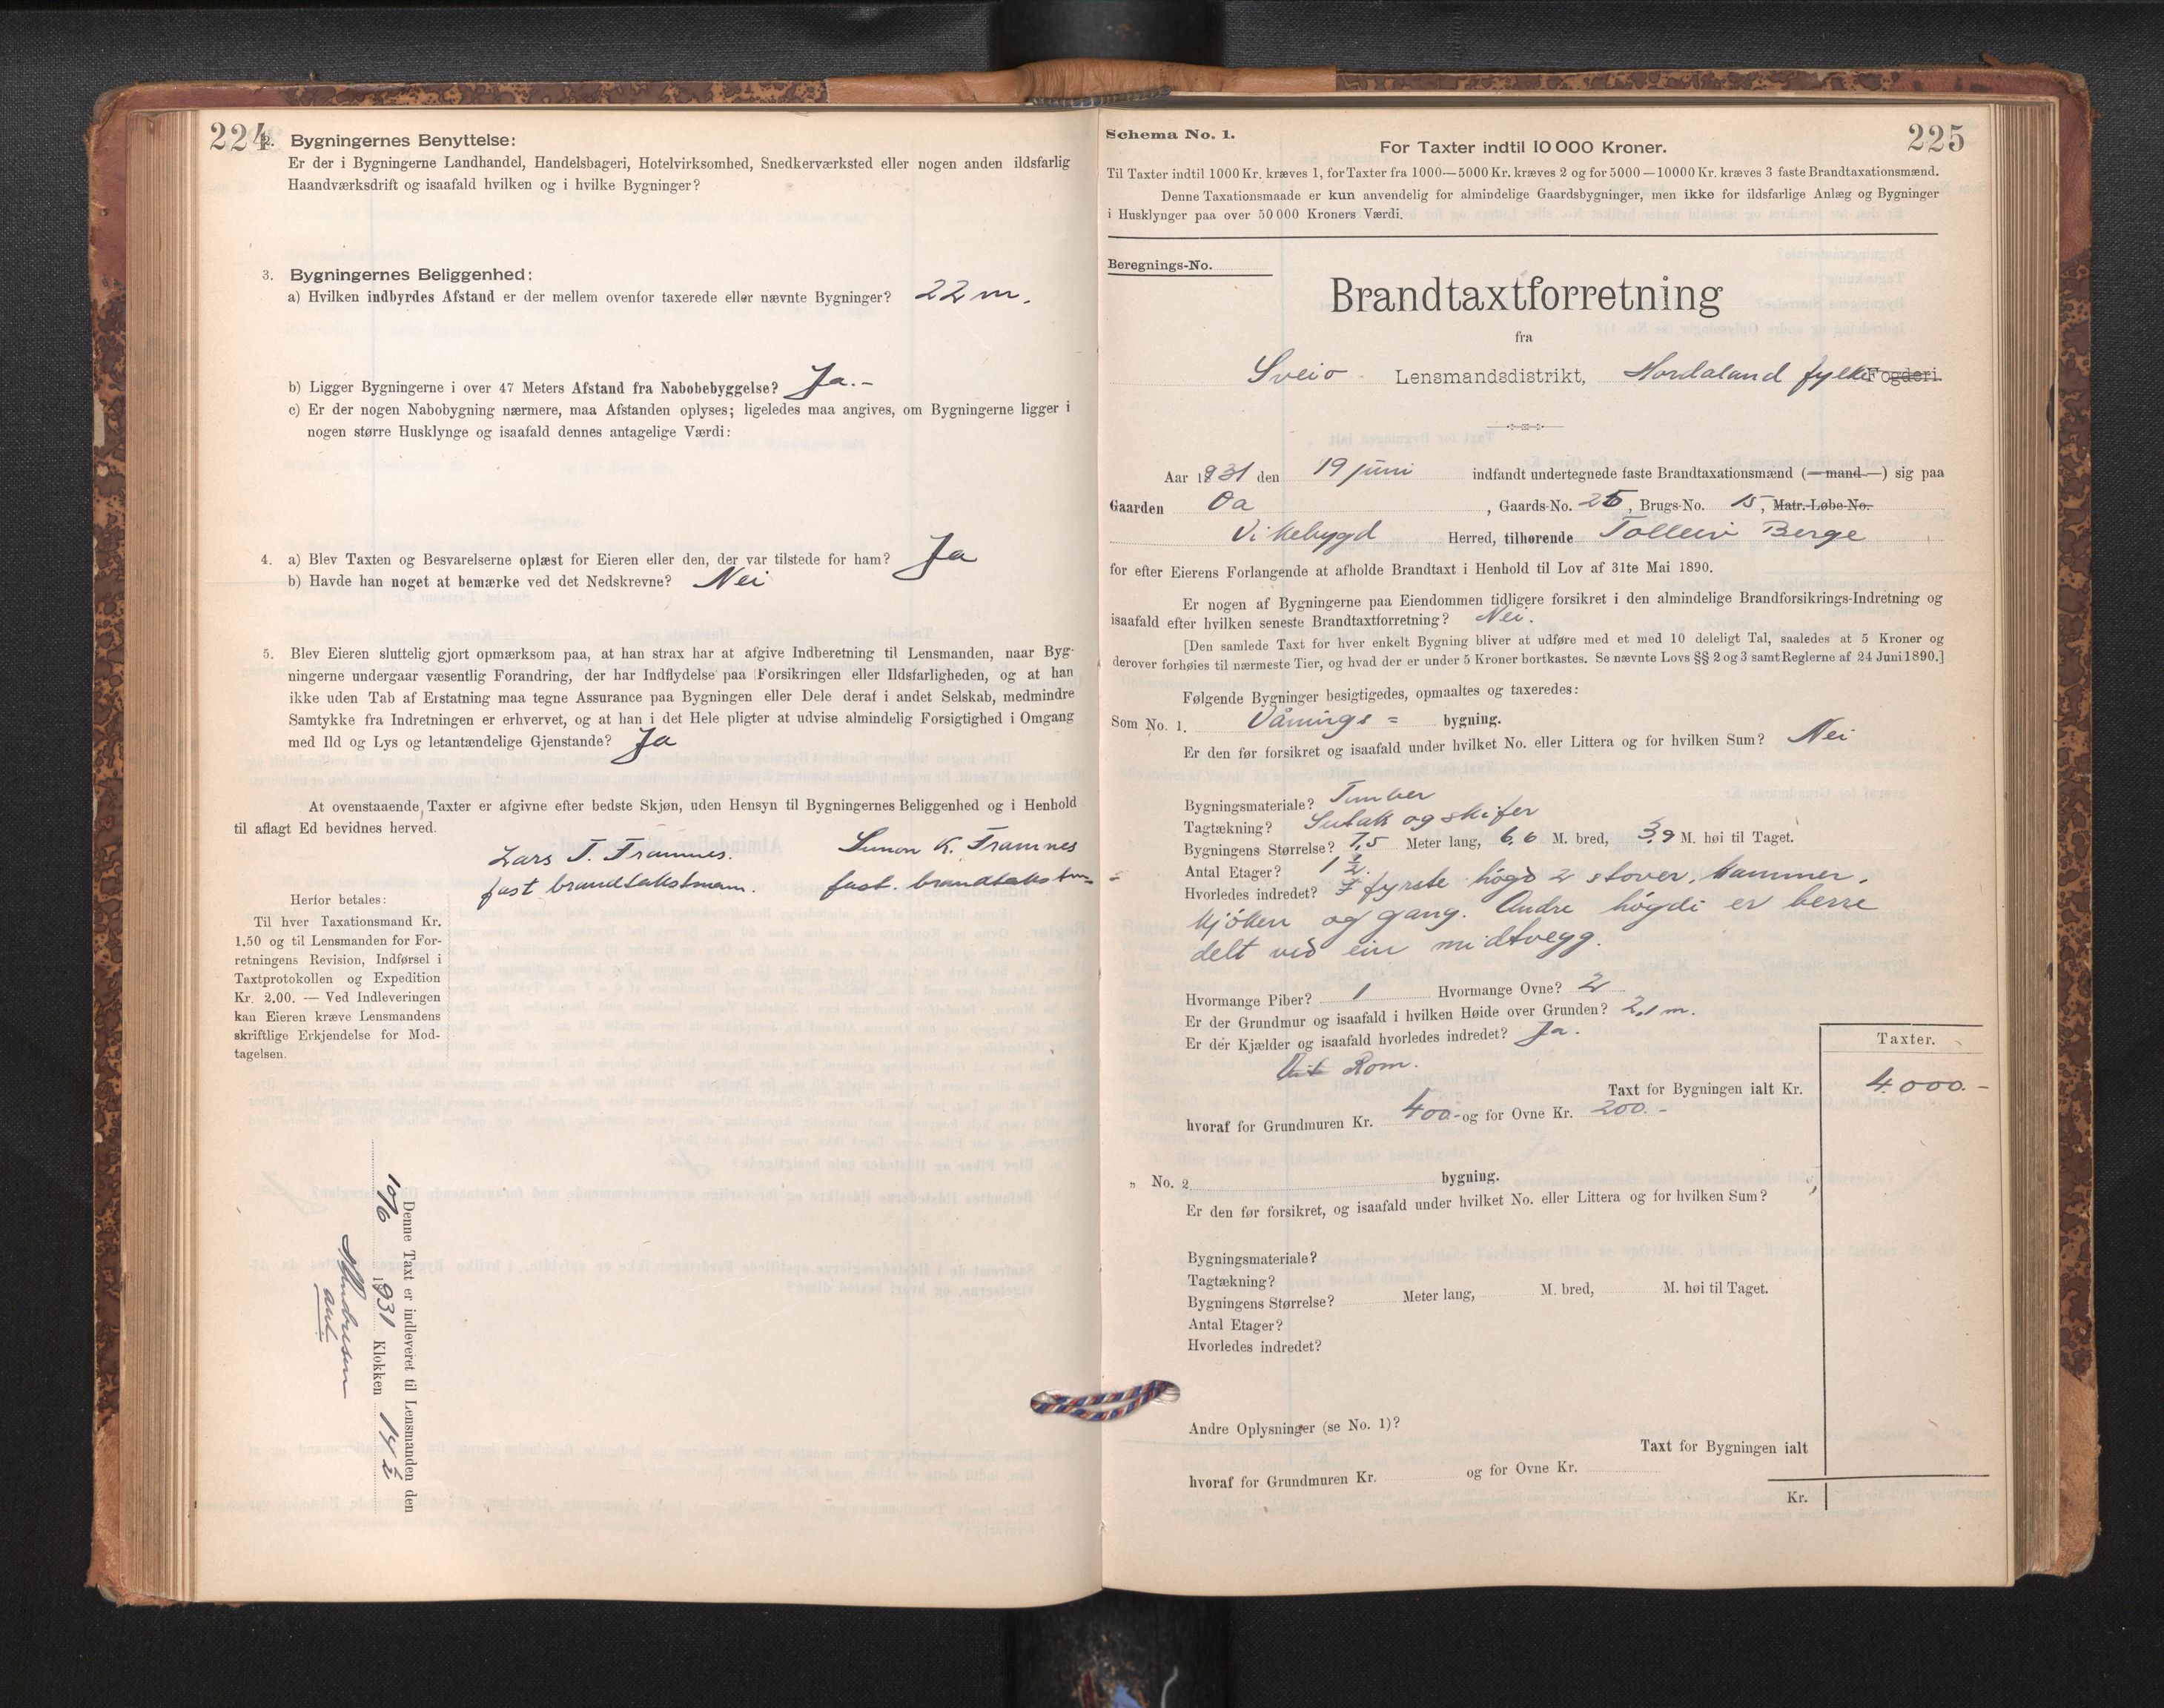 224
2. Bygningernes Benyttelse:
Er der i Bygningerne Landhandel, Handelsbageri, Hotelvirksomhed, Snedkerværksted eller nogen anden ildsfarlig
Haandværksdrift og isaafald hvilken og i hvilke Bygninger?
3. Bygningernes Beliggenhed:
a) Hvilken indbyrdes Afstand er der mellem ovenfor taxerede eller nævnte Bygninger? 22 m.
b) Ligger Bygningerne i over 47 Meters Afstand fra Nabobebyggelse? Ja.-
c) Er der nogen Nabobygning nærmere, maa Afstanden oplyses; ligeledes maa angives, om Bygningerne ligger i
nogen større Husklynge og isaafald dennes antagelige Værdi:
4. a) Blev Taxten og Besvarelserne oplæst for Eieren eller den, der var tilstede for ham? Ja
b) Havde han noget at bemærke ved det Nedskrevne? Nei
5. Blev Eieren sluttelig gjort opmærksom paa, at han strax har at afgive Indberetning til Lensmanden, naar Byg-
ningerne undergaar væsentlig Forandring, der har Indflydelse paa Forsikringen eller Ildsfarligheden, og at han
ikke uden Tab af Erstatning maa tegne Assurance paa Bygningen eller Dele deraf i andet Selskab, medmindre
Samtykke fra Indretningen er erhvervet, og at han i det Hele pligter at udvise almindelig Forsigtighed i Omgang
med Ild og Lys og letantændelige Gjenstande? Ja
At ovenstaaende Taxter er afgivne efter bedste Skjøn, uden Hensyn til Bygningernes Beliggenhed og i Henhold
til aflagt Ed bevidnes herved.
Lars T. Framnes. Simon K. Framnes
fast brandtakstmann. fast. brandtakstm=
Herfor betales:
Til hver Taxationsmand Kr.
1.50 og til Lensmanden for For-
retningens Revision, Indførsel i
Taxtprotokollen og Expedition
Kr. 2.00. — Ved Indleveringen
kan Eieren kræve Lensmandens
skriftlige Erkjendelse for Mod-
tagelsen.
Denne Taxt er indleveret til Lensmanden den
10/6 1931 Klokken 14 ½
225
Schema No. 1.
For Taxter indtil 10 000 Kroner.
Til Taxter indtil 1000 Kr. kræves 1, for Taxter fra 1000—5000 Kr. kræves 2 og for 5000—10000 Kr. kræves 3 faste Brandtaxationsmænd.
Denne Taxationsmaade er kun anvendelig for almindelige Gaardsbygninger, men ikke for ildsfarlige Anlæg og Bygninger
i Husklynger paa over 50 000 Kroners Værdi.
Beregnings-No.
Brandtaxtforretning
fra
Sveio Lensmandsdistrikt, Hordaland fylke Fogderi.
Aar 1931 den 19 juni indfandt undertegnede faste Brandtaxationsmænd (—mand—) sig paa
Gaarden Øa, Gaards-No. 25, Brugs-No. 15, Matr.-Løbe-No.
Vikebygd Herred, tilhørende Tolleiv Berge
for efter Eierens Forlangende at afholde Brandtaxt i Henhold til Lov af 31te Mai 1890.
Er nogen af Bygningerne paa Eiendommen tidligere forsikret i den almindelige Brandforsikrings-Indretning og
isaafald efter hvilken seneste Brandtaxtforretning? Nei.
[Den samlede Taxt for hver enkelt Bygning bliver at udføre med et med 10 deleligt Tal, saaledes at 5 Kroner og
derover forhøies til nærmeste Tier, og hvad der er under 5 Kroner bortkastes. Se nævnte Lovs §§ 2 og 3 samt Reglerne af 24 Juni 1890.]
Følgende Bygninger besigtigedes, opmaaltes og taxeredes:
Som No. 1. Vånings = bygning.
Er den før forsikret og isaafald under hvilket No. eller Littera og for hvilken Sum? Nei
Bygningsmateriale? Timber
Tagtækning? Sutak og skifer
Bygningens Størrelse? 7,5 Meter lang, 6,6 M. bred, 3,9 M. høi til Taget.
Antal Etager? 1 ½.
Hvorledes indredet? I fyrste høgd 2 stover, kammer,
kjøken og gang. Andre høgdi er berre
delt ved ein midtvegg.
Hvormange Piber? 1 Hvormange Ovne? 2
Er der Grundmur og isaafald i hvilken Høide over Grunden? 2,1 m.
Er der Kjælder og isaafald hvorledes indredet? Ja.
Rom.
Taxter.
Taxt for Bygningen ialt Kr. 4000.-
hvoraf for Grundmuren Kr. 400.- og for Ovne Kr. 200.-
„ No. 2. bygning.
Er den før forsikret, og isaafald under hvilket No. eller Littera og for hvilken Sum?
Bygningsmateriale?
Tagtækning?
Bygningens Størrelse? Meter lang, M. bred, M. høi til Taget.
Antal Etager?
Hvorledes indredet?
Andre Oplysninger (se No. 1)?
Taxt for Bygningen ialt
hvoraf for Grundmuren Kr. og for Ovne Kr.
Kr.